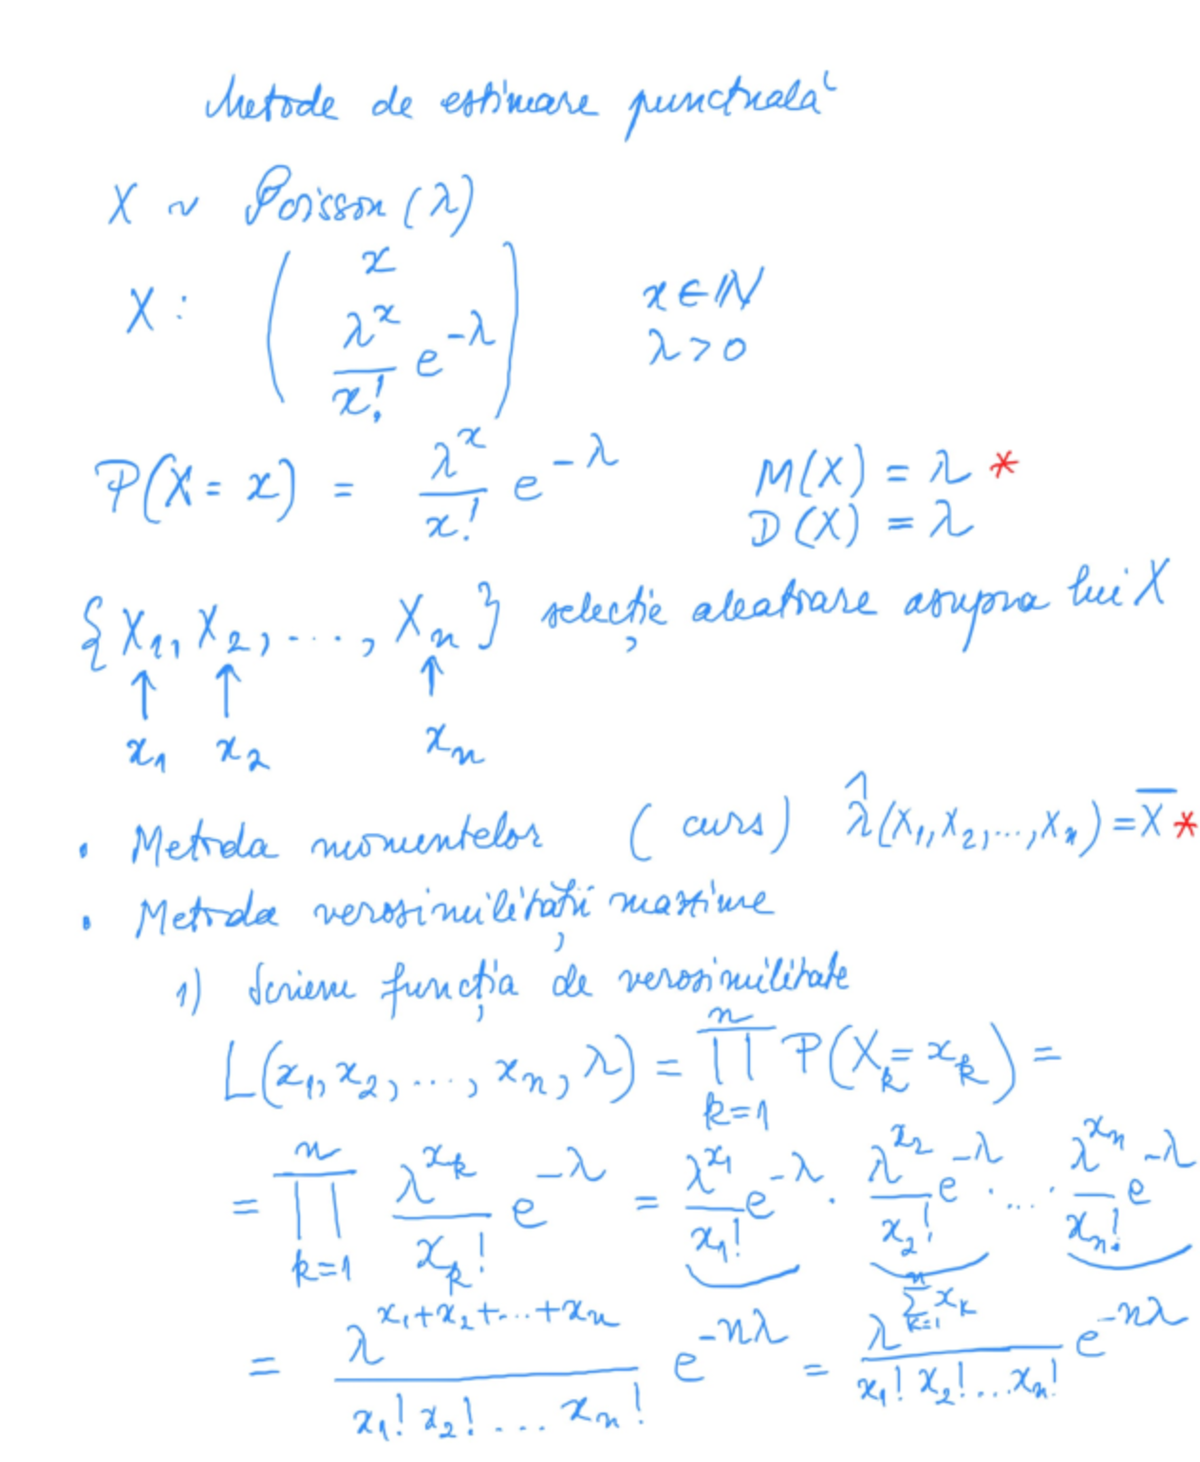 Metode de estimare punctuală
X ~ Poisson(λ)
X : ( x / (λ^x / x!) e^{-λ} ) x ∈ ℕ
λ > 0
P(X = x) = (λ^x / x!) e^{-λ} M(X) = λ *
D(X) = λ
{X₁, X₂, ..., Xₙ} selecție aleatoare asupra lui X
↑ ↑ ↑
x₁ x₂ xₙ
• Metoda momentelor (curs) λ̂(X₁, X₂, ..., Xₙ) = X̄ *
• Metoda verosimilității maxime
1) Scriem funcția de verosimilitate
L(x₁, x₂, ..., xₙ, λ) = ∏_{k=1}^{n} P(X_k = x_k) =
= ∏_{k=1}^{n} (λ^{x_k} / x_k!) e^{-λ} = (λ^{x₁} / x₁!) e^{-λ} · (λ^{x₂} / x₂!) e^{-λ} · ... · (λ^{xₙ} / xₙ!) e^{-λ}
= (λ^{x₁+x₂+...+xₙ} / x₁! x₂! ... xₙ!) e^{-nλ} = (λ^{∑_{k=1}^{n} x_k} / x₁! x₂! ... xₙ!) e^{-nλ}